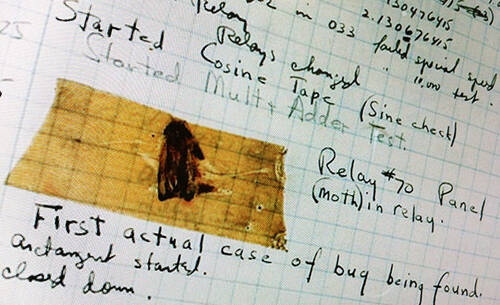 Relay
2.130476415
in 033 failed special speed
2.130676415
25
Relays changed
" 11,000 test.
Started Cosine Tape (Sine check)
Started Mult + Adder Test.
Relay #70 Panel
(moth) in relay.
First actual case of bug being found.
arctangent started.
closed down.